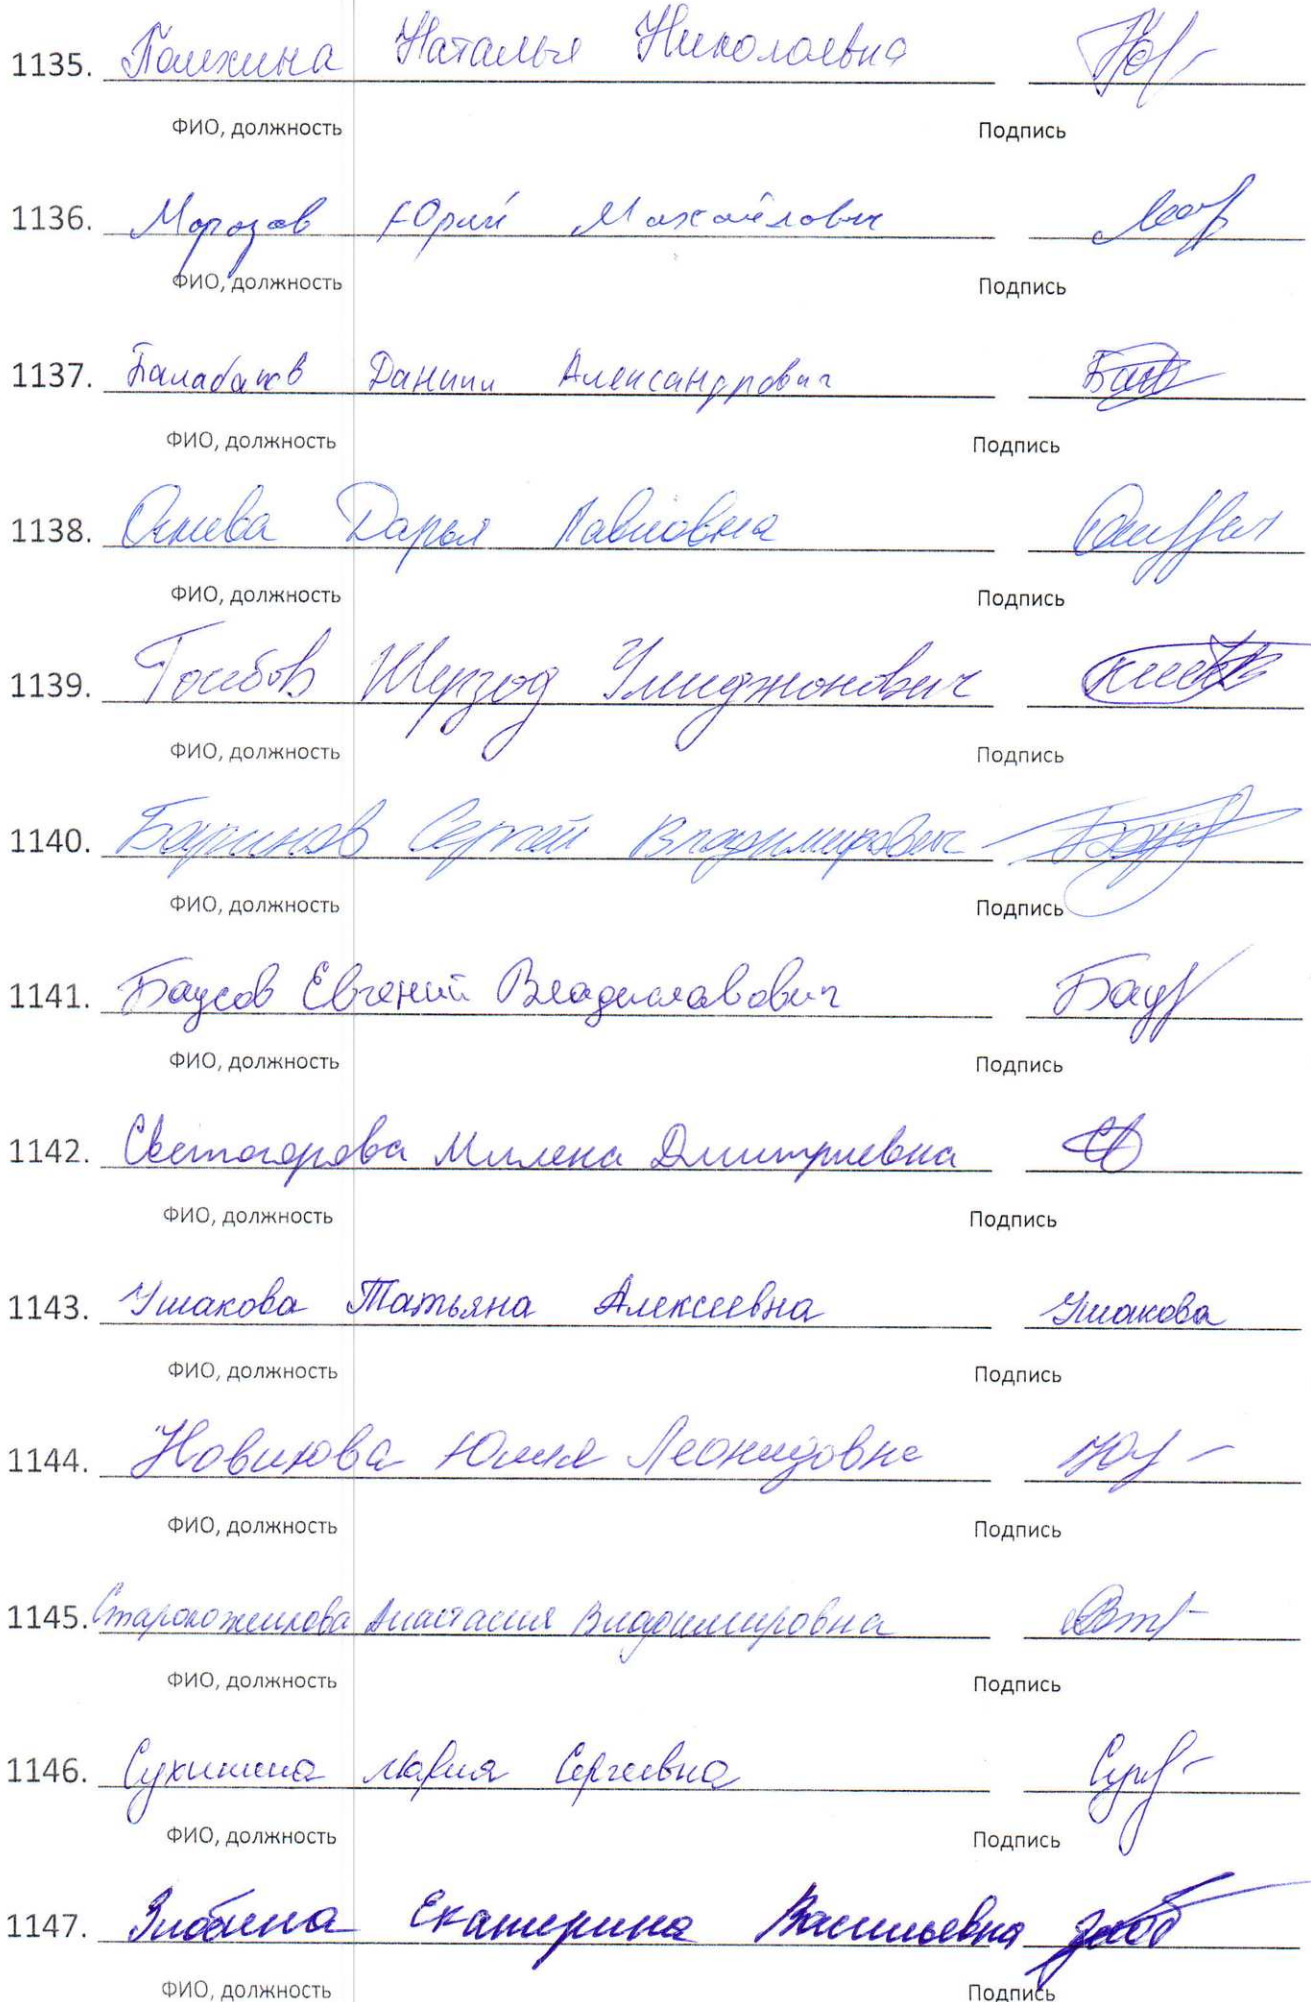 1135. Наталья Николаевна
ФИО, должность Подпись
1136. Морозов Юрий Михайлович
ФИО, должность Подпись
1137. Балабанов Даниил Александрович
ФИО, должность Подпись
1138. Дарья Павловна
ФИО, должность Подпись
1139. Гоибов Шерзод Умиджонович
ФИО, должность Подпись
1140. Баринов Сергей Владимирович
ФИО, должность Подпись
1141. Баусов Евгений Владиславович Бау
ФИО, должность Подпись
1142. Светогорова Милена Дмитриевна
ФИО, должность Подпись
1143. Ушакова Татьяна Алексеевна Ушакова
ФИО, должность Подпись
1144. Новикова Юлия Леонидовна
ФИО, должность Подпись
1145. Старокожилова Анастасия Владимировна
ФИО, должность Подпись
1146. Мария Сергеевна
ФИО, должность Подпись
1147. Злобина Екатерина Васильевна
ФИО, должность Подпись